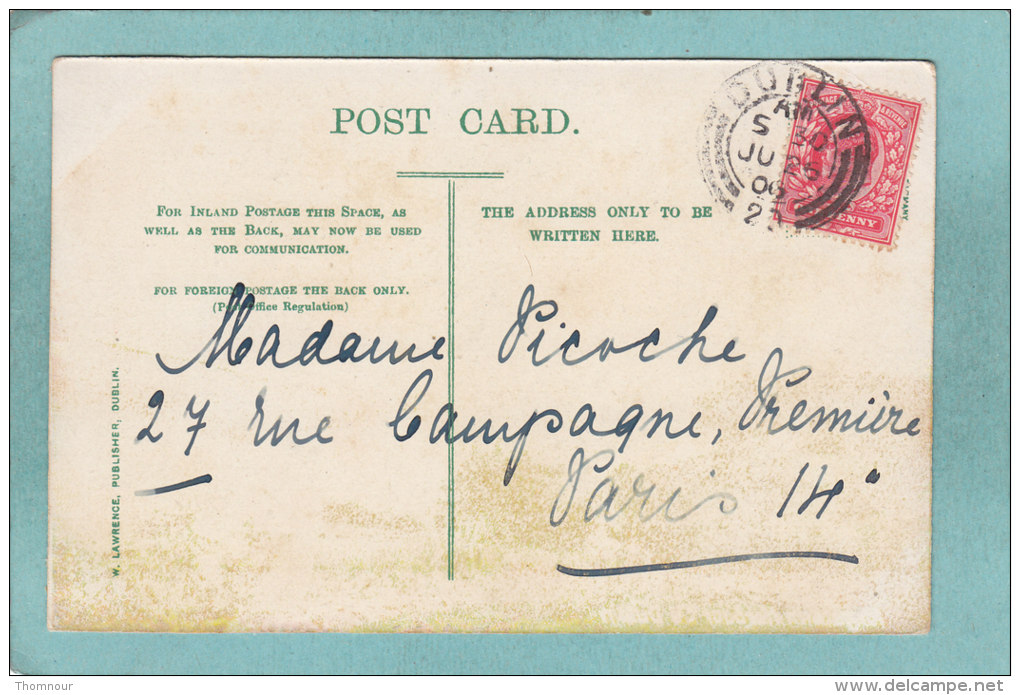 POST CARD.
FOR INLAND POSTAGE THIS SPACE, AS
WELL AS THE BACK, MAY NOW BE USED
FOR COMMUNICATION.
FOR FOREIGN POSTAGE THE BACK ONLY.
(Post Office Regulation)
THE ADDRESS ONLY TO BE
WRITTEN HERE.
DUBLIN
AM
JU 25
Madame Picoche
27 rue Campagne, Première
Paris 14°
W. LAWRENCE, PUBLISHER, DUBLIN.
Thomnour
www.delcampe.net